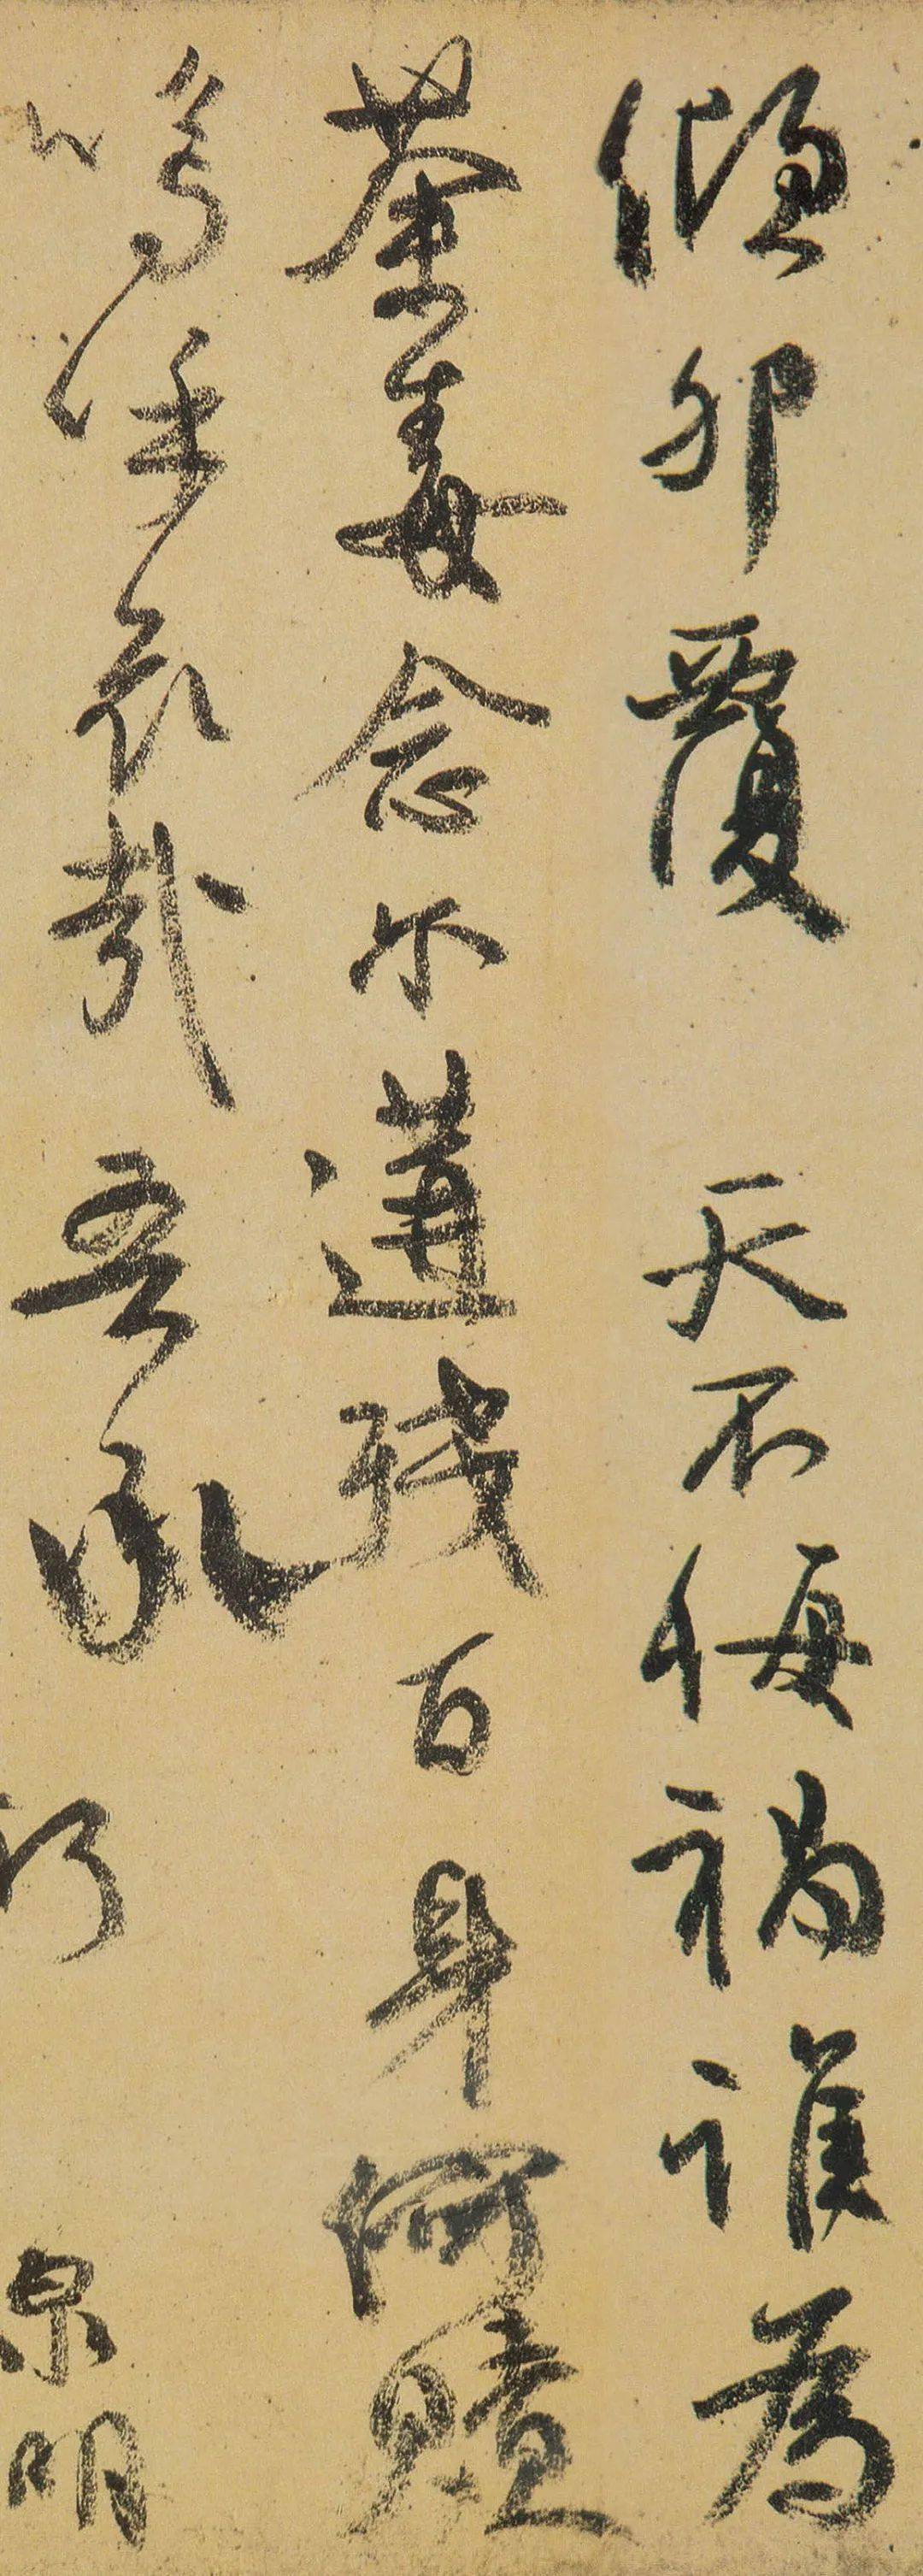 傾卵覆 天不悔禍誰為
荼毒念尔遘殘百身何贖
嗚乎哀哉吾承
泉明